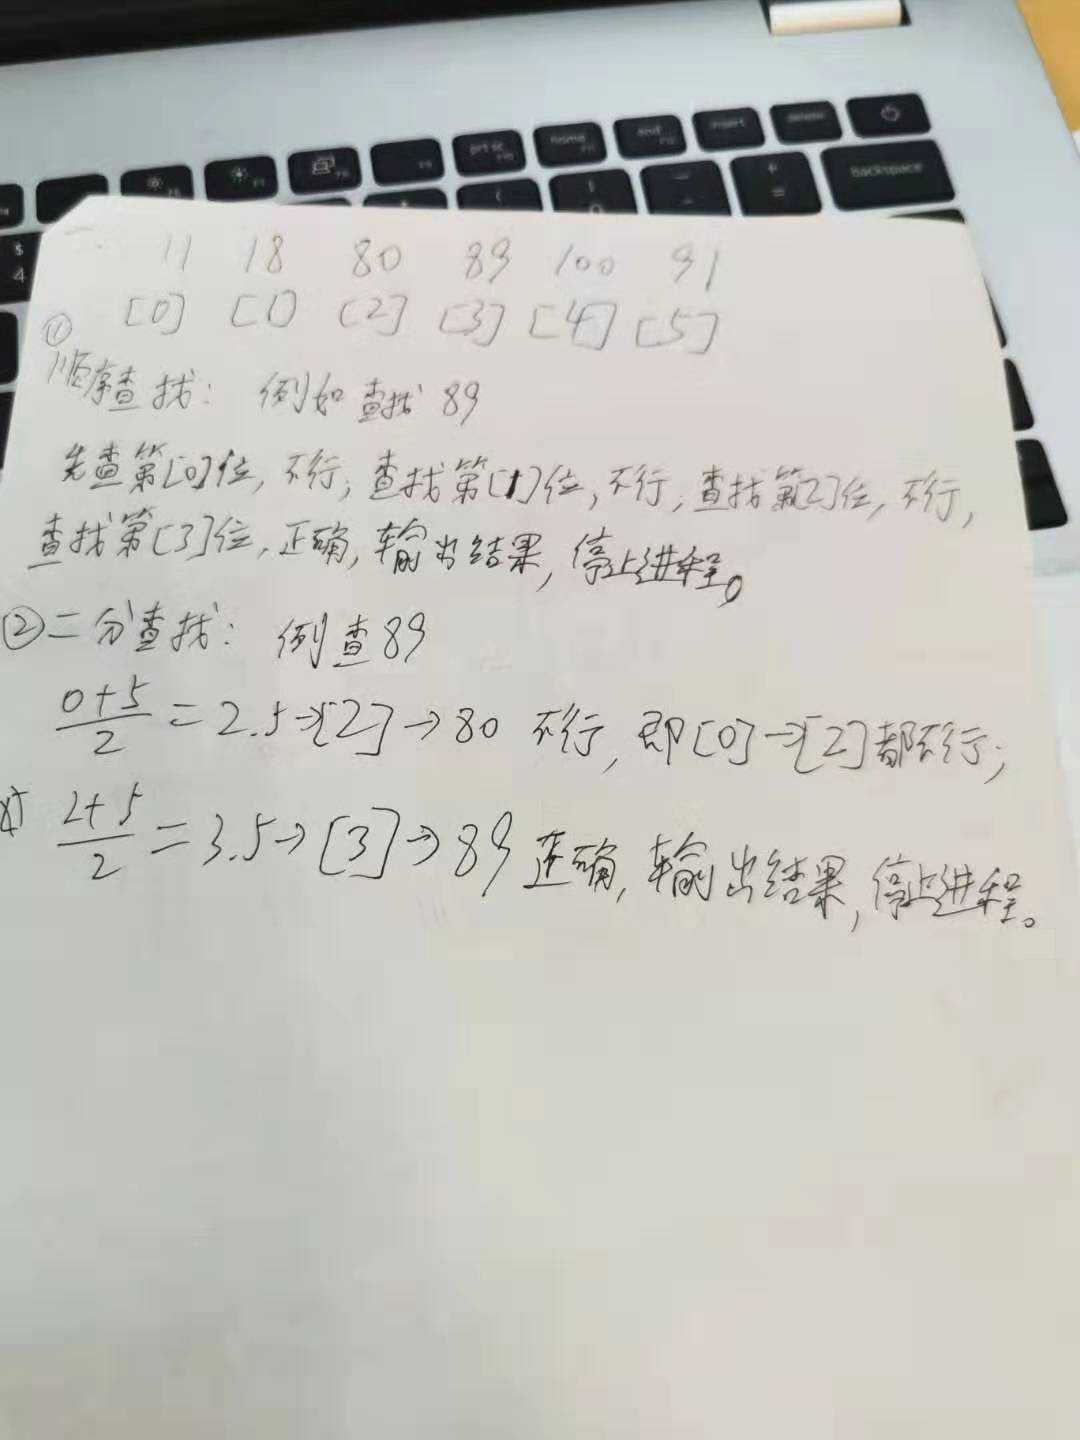 prt sc
home
end
insert
delete
Backspace
$
4
一. 11 18 80 89 100 91
[0] [1] [2] [3] [4] [5]
①
顺序查找: 例如查找 89
先查第[0]位, 不行, 查找第[1]位, 不行, 查找第[2]位, 不行,
查找第[3]位, 正确, 输出结果, 停止进程。
②二分查找: 例查89
0+5/2 = 2.5→[2]→80 不行, 即[0]→[2]都不行;
2+5/2 = 3.5→[3]→89 正确, 输出结果, 停止进程。